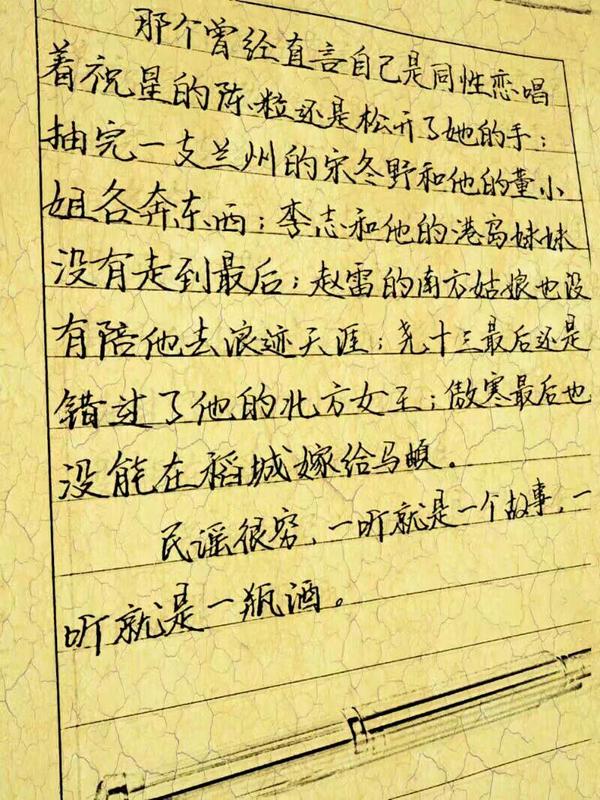 那个曾经直言自己是同性恋唱
着祝星的陈粒还是松开了她的手；
抽完一支兰州的宋冬野和他的董小
姐各奔东西；李志和他的港岛妹妹
没有走到最后；赵雷的南方姑娘也没
有陪他去浪迹天涯；尧十三最后还是
错过了他的北方女王；傲寒最后也
没能在稻城嫁给马頔.
民谣很穷，一听就是一个故事，一
听就是一瓶酒。